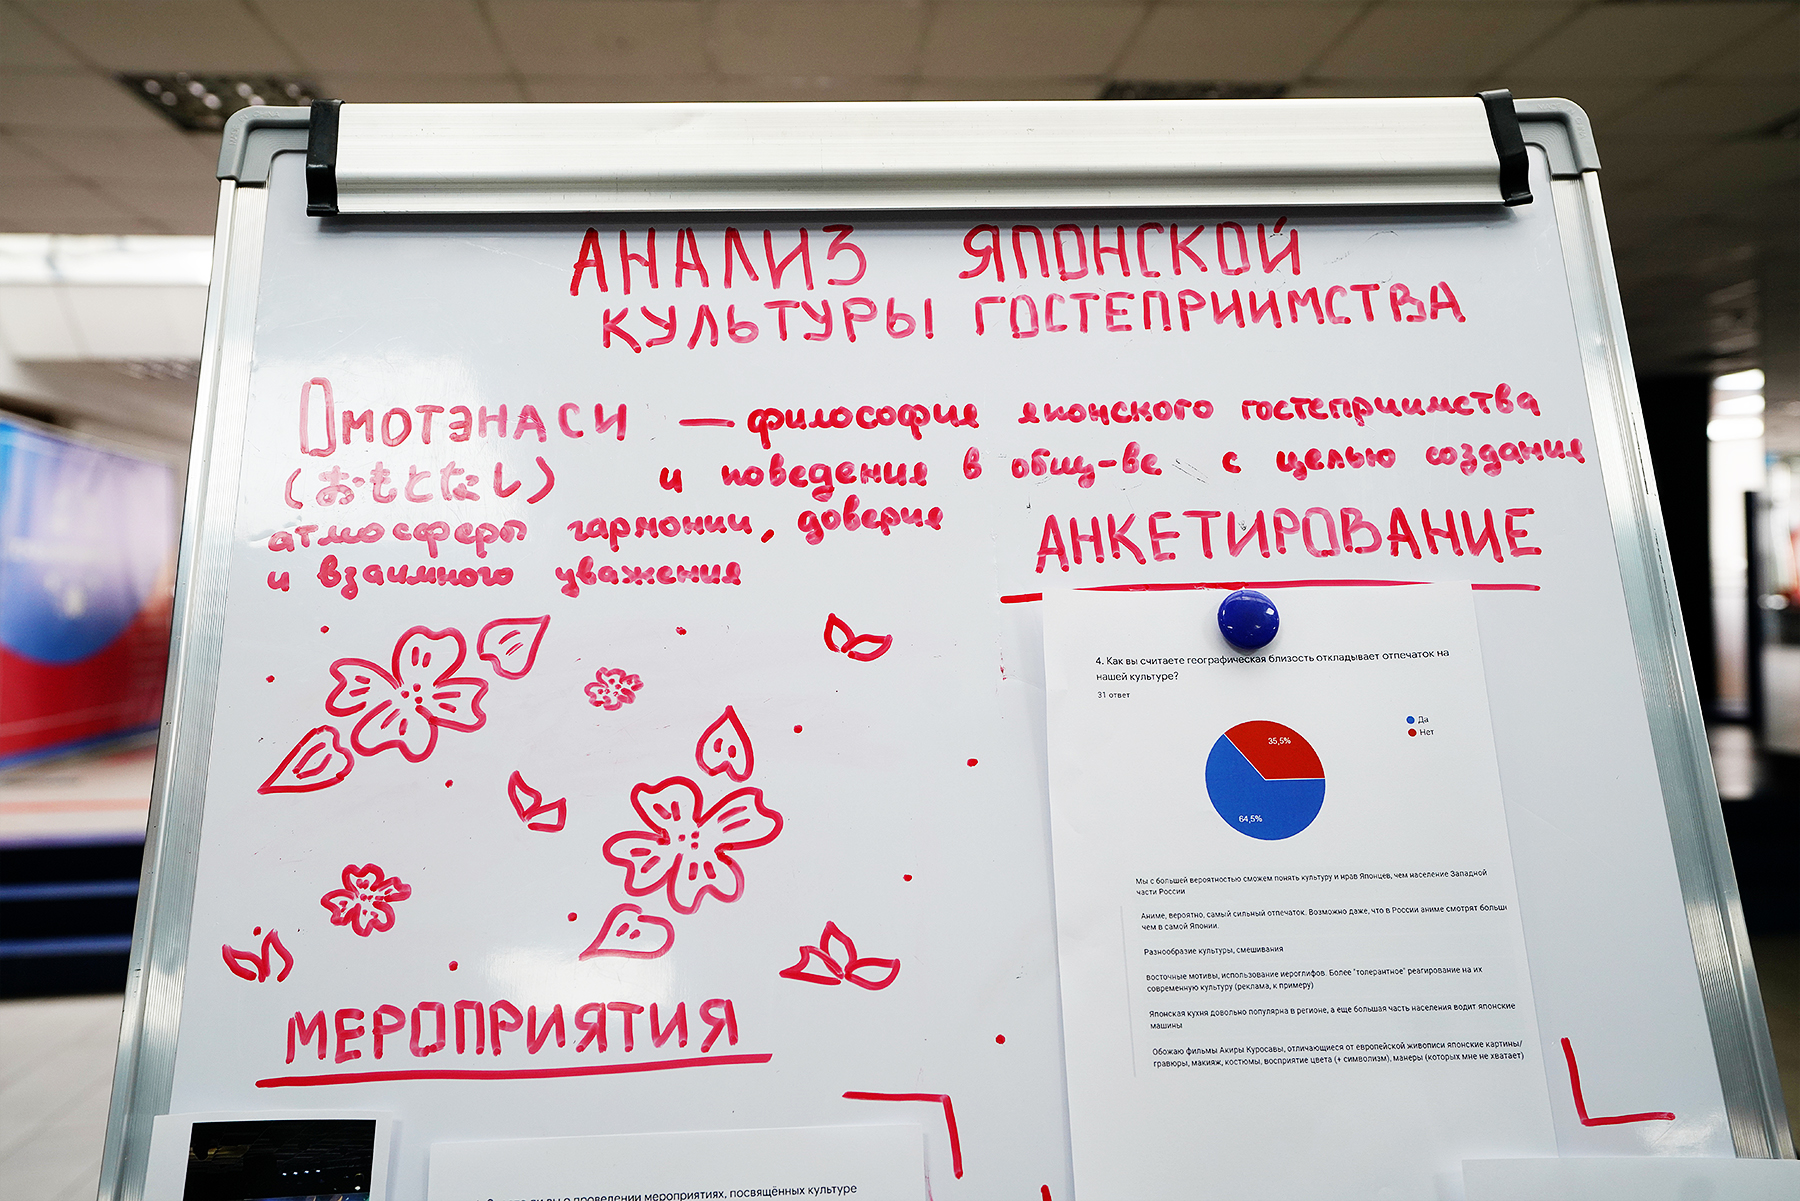 АНАЛИЗ ЯПОНСКОЙ
КУЛЬТУРЫ ГОСТЕПРИИМСТВА
ОМОТЭНАСИ — философия японского гостеприимства
(おもてなし) и поведения в общ-ве с целью создания
атмосферы гармонии, доверия
и взаимного уважения
АНКЕТИРОВАНИЕ
4. Как вы считаете географическая близость откладывает отпечаток на
нашей культуре?
31 ответ
Да
Нет
35,5%
64,5%
Мы с большей вероятностью сможем понять культуру и нрав Японцев, чем население Западной
части России
Аниме, вероятно, самый сильный отпечаток. Возможно даже, что в России аниме смотрят больш
чем в самой Японии.
Разнообразие культуры, смешивания
восточные мотивы, использование иероглифов. Более "толерантное" реагирование на их
современную культуру (реклама, к примеру)
Японская кухня довольно популярна в регионе, а еще большая часть населения водит японские
машины
Обожаю фильмы Акиры Куросавы, отличающиеся от европейской живописи японские картины/
гравюры, макияж, костюмы, восприятие цвета (+ символизм), манеры (которых мне не хватает)
МЕРОПРИЯТИЯ
ли вы о проведении мероприятиях, посвящённых культуре